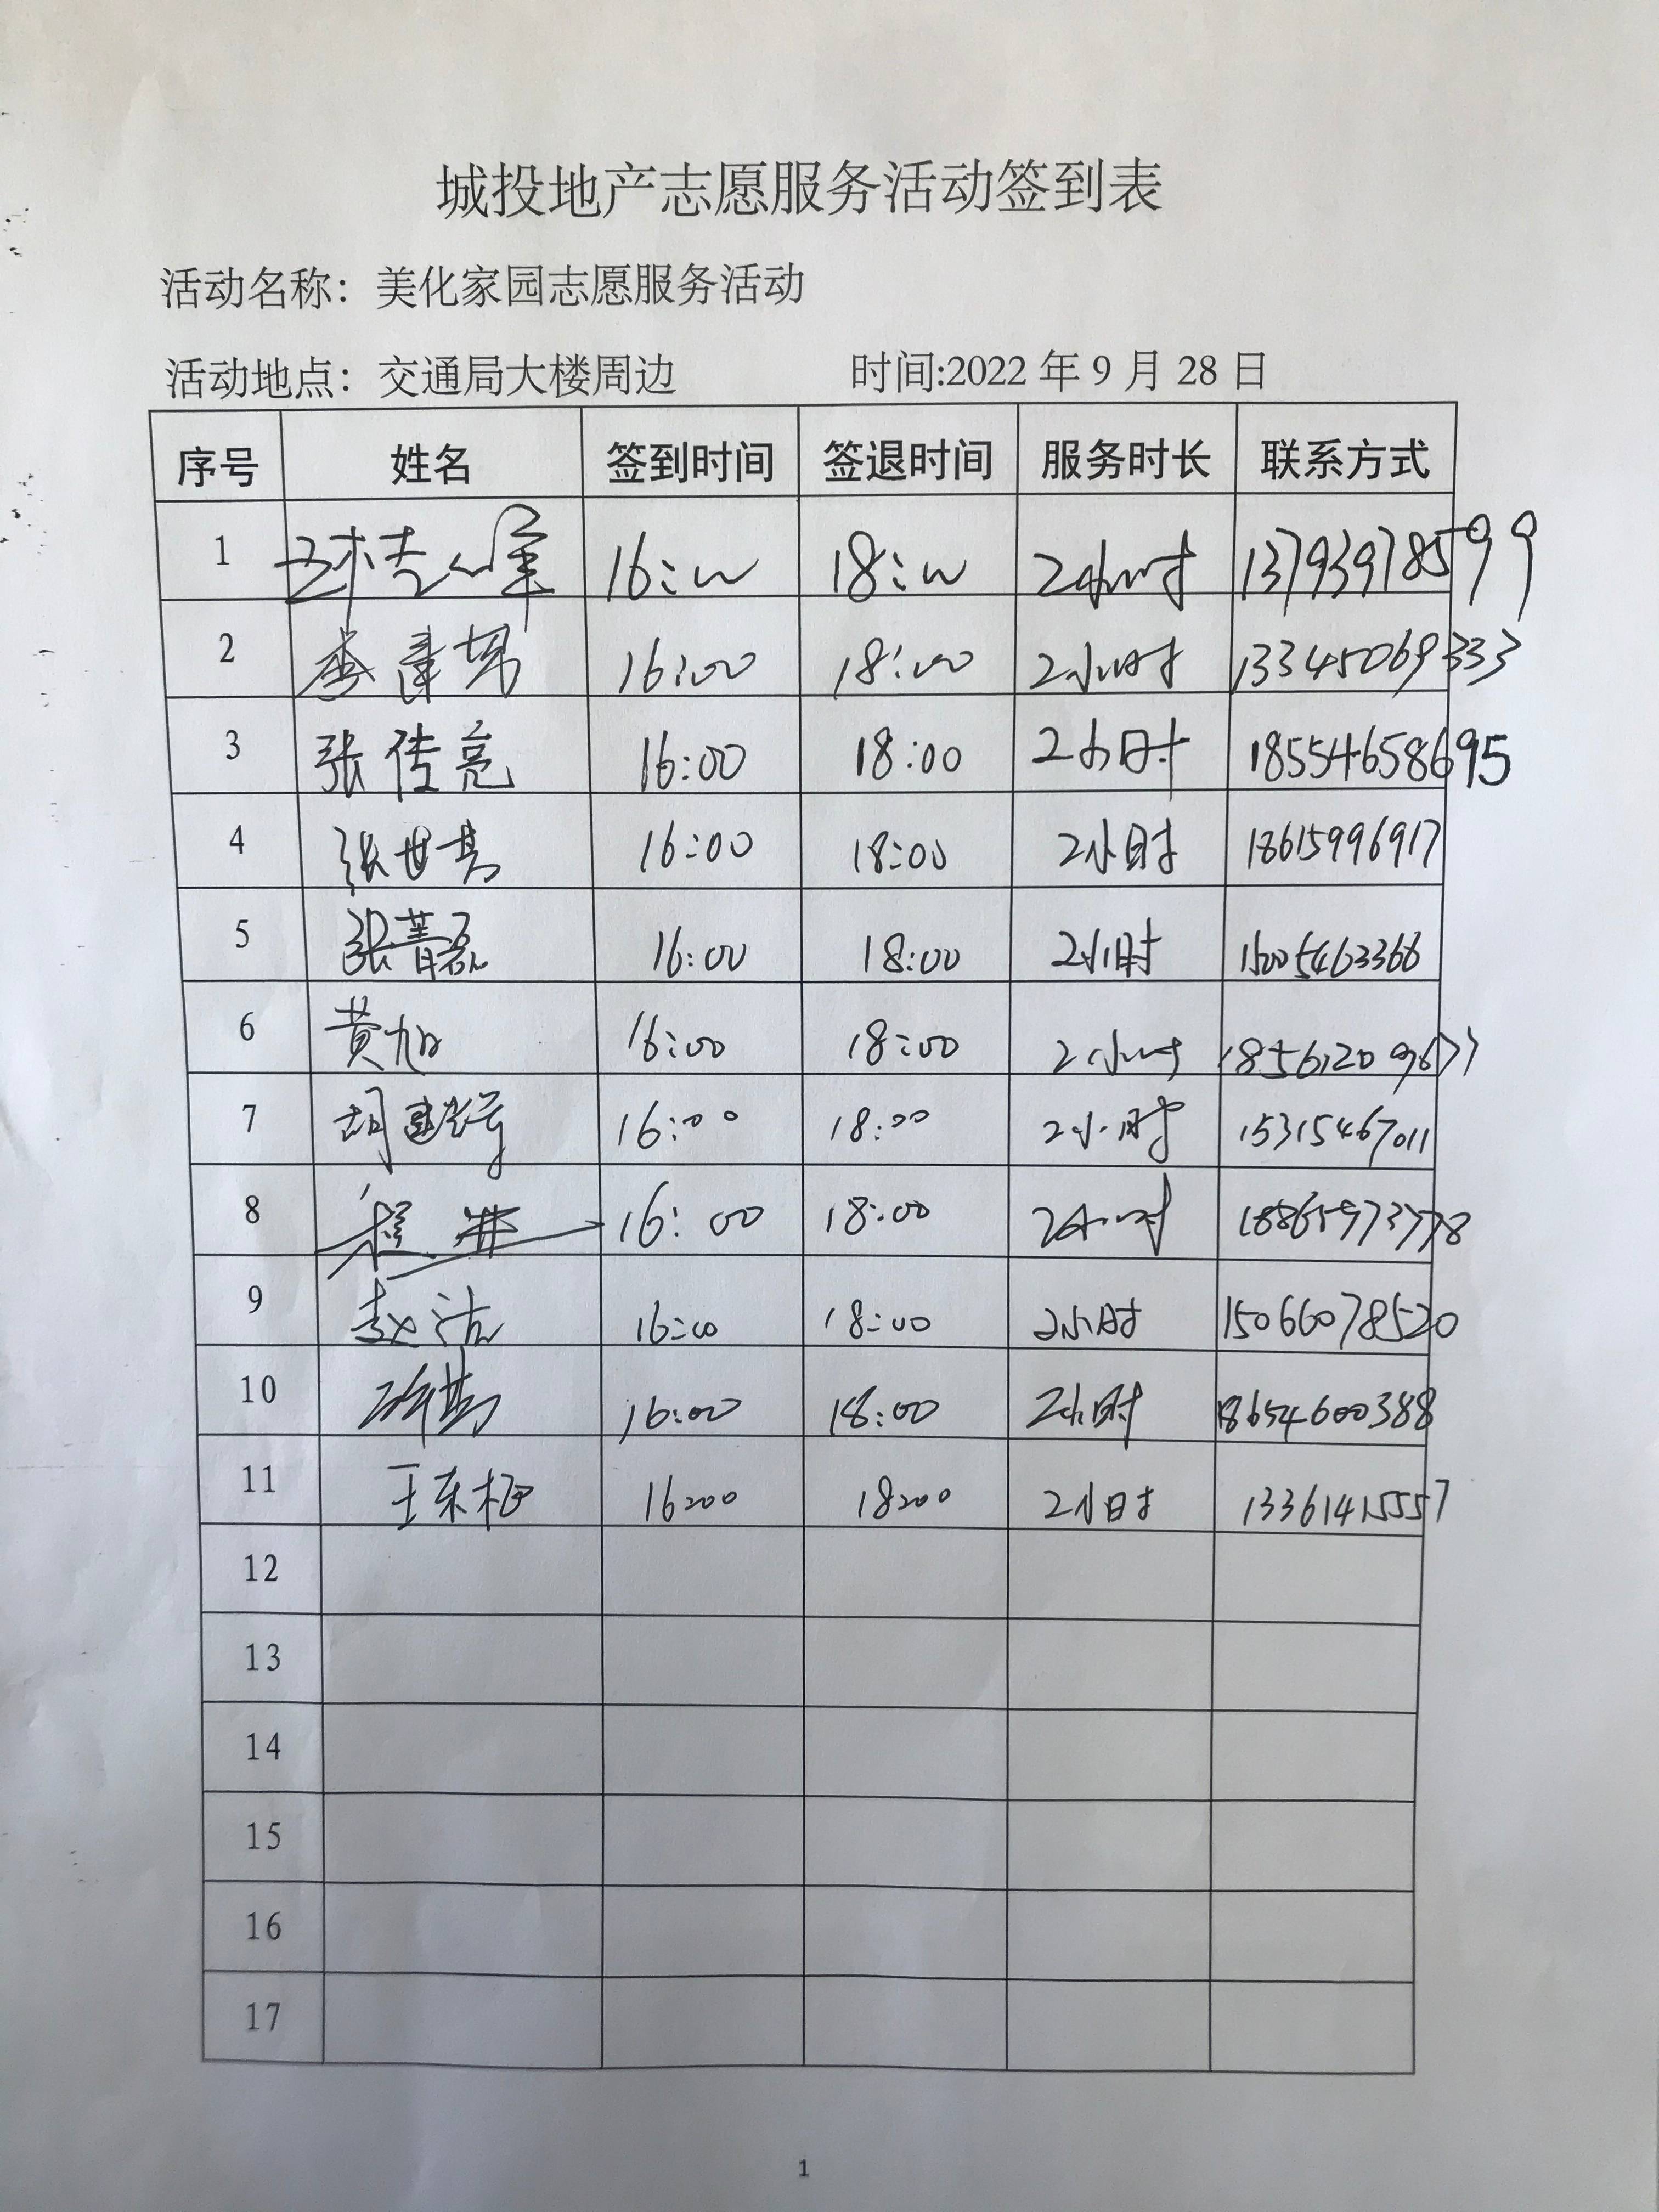 城投地产志愿服务活动签到表
活动名称：美化家园志愿服务活动
活动地点：交通局大楼周边 时间:2022 年 9 月 28 日
序号 姓名 签到时间 签退时间 服务时长 联系方式
1 16:00 18:00 2小时 13793978599
2 16:00 18:00 2小时 13345069333
3 张传亮 16:00 18:00 2小时 18554658695
4 张世秀 16:00 18:00 2小时 18615996917
5 张菁磊 16:00 18:00 2小时 15005463366
6 黄旭 16:00 18:00 2小时
7 16:00 18:00 2小时 15315467011
8 16:00 18:00 2小时 18865973778
9 赵洁 16:00 18:00 2小时 15066078520
10 16:00 18:00 2小时 18654600388
11 王东柜 16:00 18:00 2小时 13361415557
12
13
14
15
16
17
1